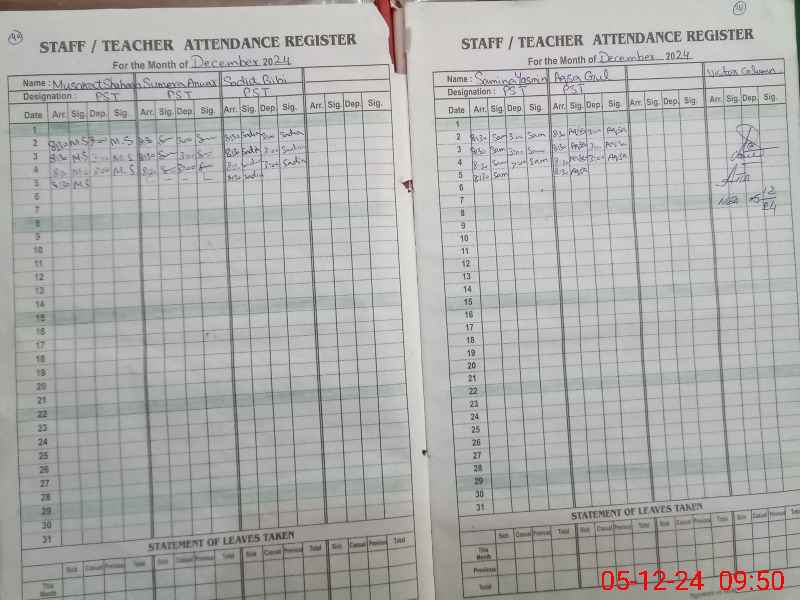 STAFF / TEACHER ATTENDANCE REGISTER
For the Month of December 2024
Name : Musarat Shaheen Sumera Anwar Sadia Bibi
Designation : PST PST PST
Date Arr. Sig. Dep. Sig. Arr. Sig. Dep. Sig. Arr. Sig. Dep. Sig. Arr. Sig. Dep. Sig.
1
2 8:30 M.S 3:00 M.S 8:30 S 3:00 S 8:30 Sadia 3:00 Sadia
3 8:30 M.S M.S 8:30 S 3:00 S 8:30 Sadia 3:00 Sadia
4 M.S 3:00 M.S 8:30 S 3:00 S 3:00 Sadia
5 8:30 M.S 8:30 Sadia
6
7
8
9
10
11
12
13
14
15
16
17
18
19
20
21
22
23
24
25
26
27
28
29
30
31
STATEMENT OF LEAVES TAKEN
Sick Casual Previous Total Sick Casual Previous Total Sick Casual Previous Total
This Month
STAFF / TEACHER ATTENDANCE REGISTER
For the Month of December 2024
Name : Samina Yasmin Aqsa Gul Visitor Column
Designation : PST PST
Date Arr. Sig. Dep. Sig. Arr. Sig. Dep. Sig. Arr. Sig. Dep. Sig. Arr. Sig. Dep. Sig.
1
2 8:30 Sam 3:00 Sam 8:30 Aqsa 3:00 Aqsa
3 8:30 Sam 3:00 Sam 8:30 Aqsa Aqsa
4 8:30 Sam 3:00 Sam 8:30 Aqsa 3:00 Aqsa
5 8:30 Sam 8:30 Aqsa
6
7
8
9
10
11
12
13
14
15
16
17
18
19
20
21
22
23
24
25
26
27
28
29
30
31
STATEMENT OF LEAVES TAKEN
Sick Casual Previous Total Sick Casual Previous Total Sick Casual Previous Total
This Month
Previous
Total
05-12-24 09:50